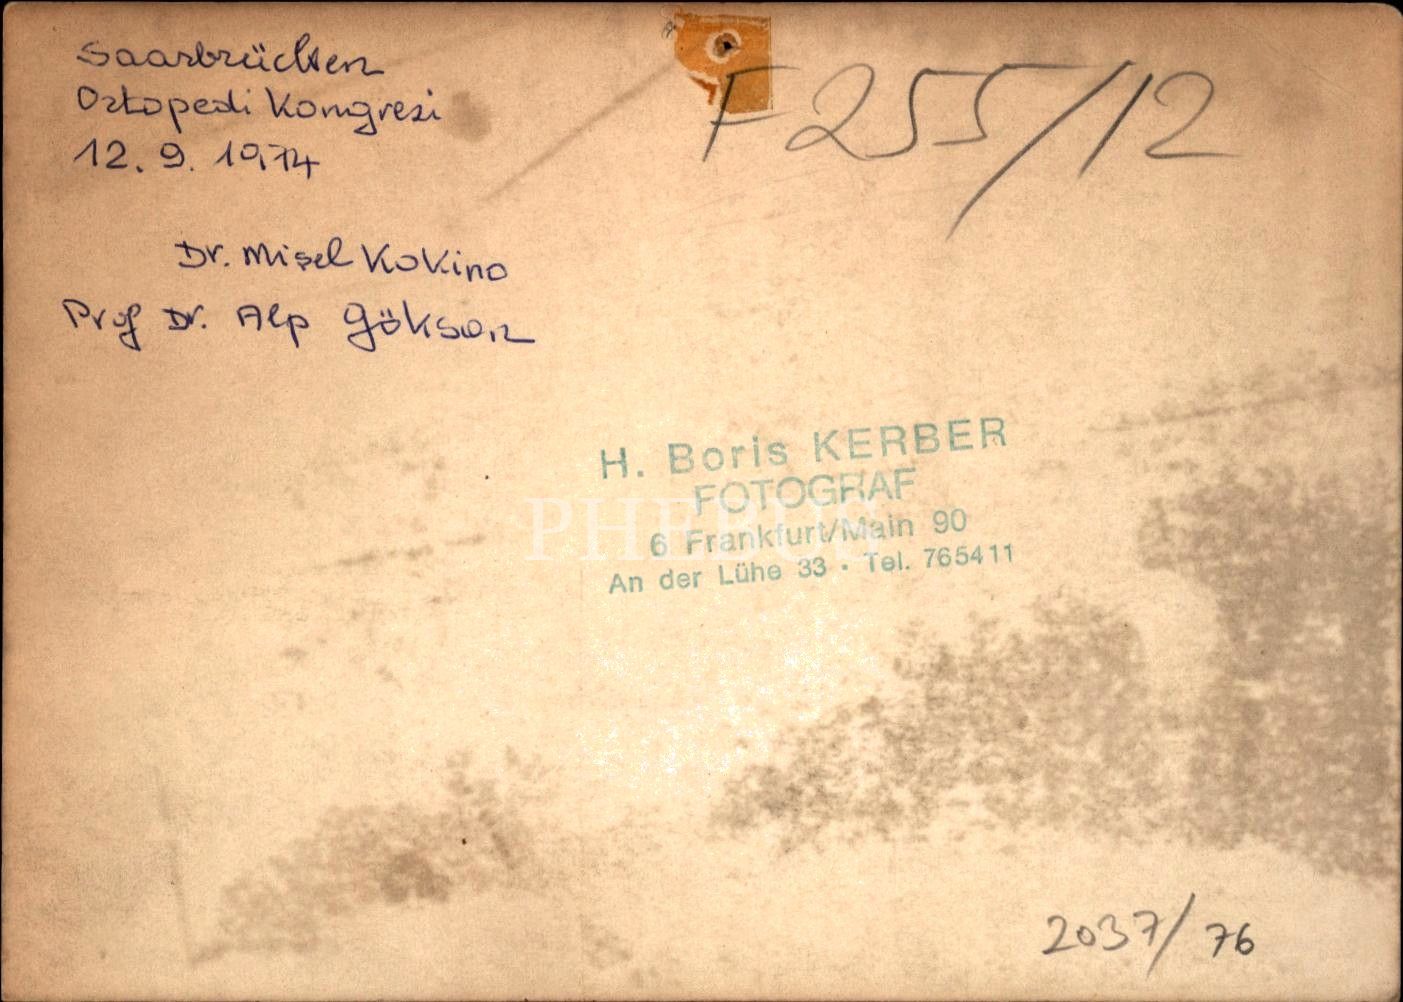 Saarbrücken
Ortopedi Kongresi
12. 9. 1974
F 255/12
Dr. Mişel Kokino
Prof Dr. Alp Göksan
H. Boris KERBER
FOTOGRAF
PHEBUS
6 Frankfurt/Main 90
An der Lühe 33 · Tel. 765411
2037/76